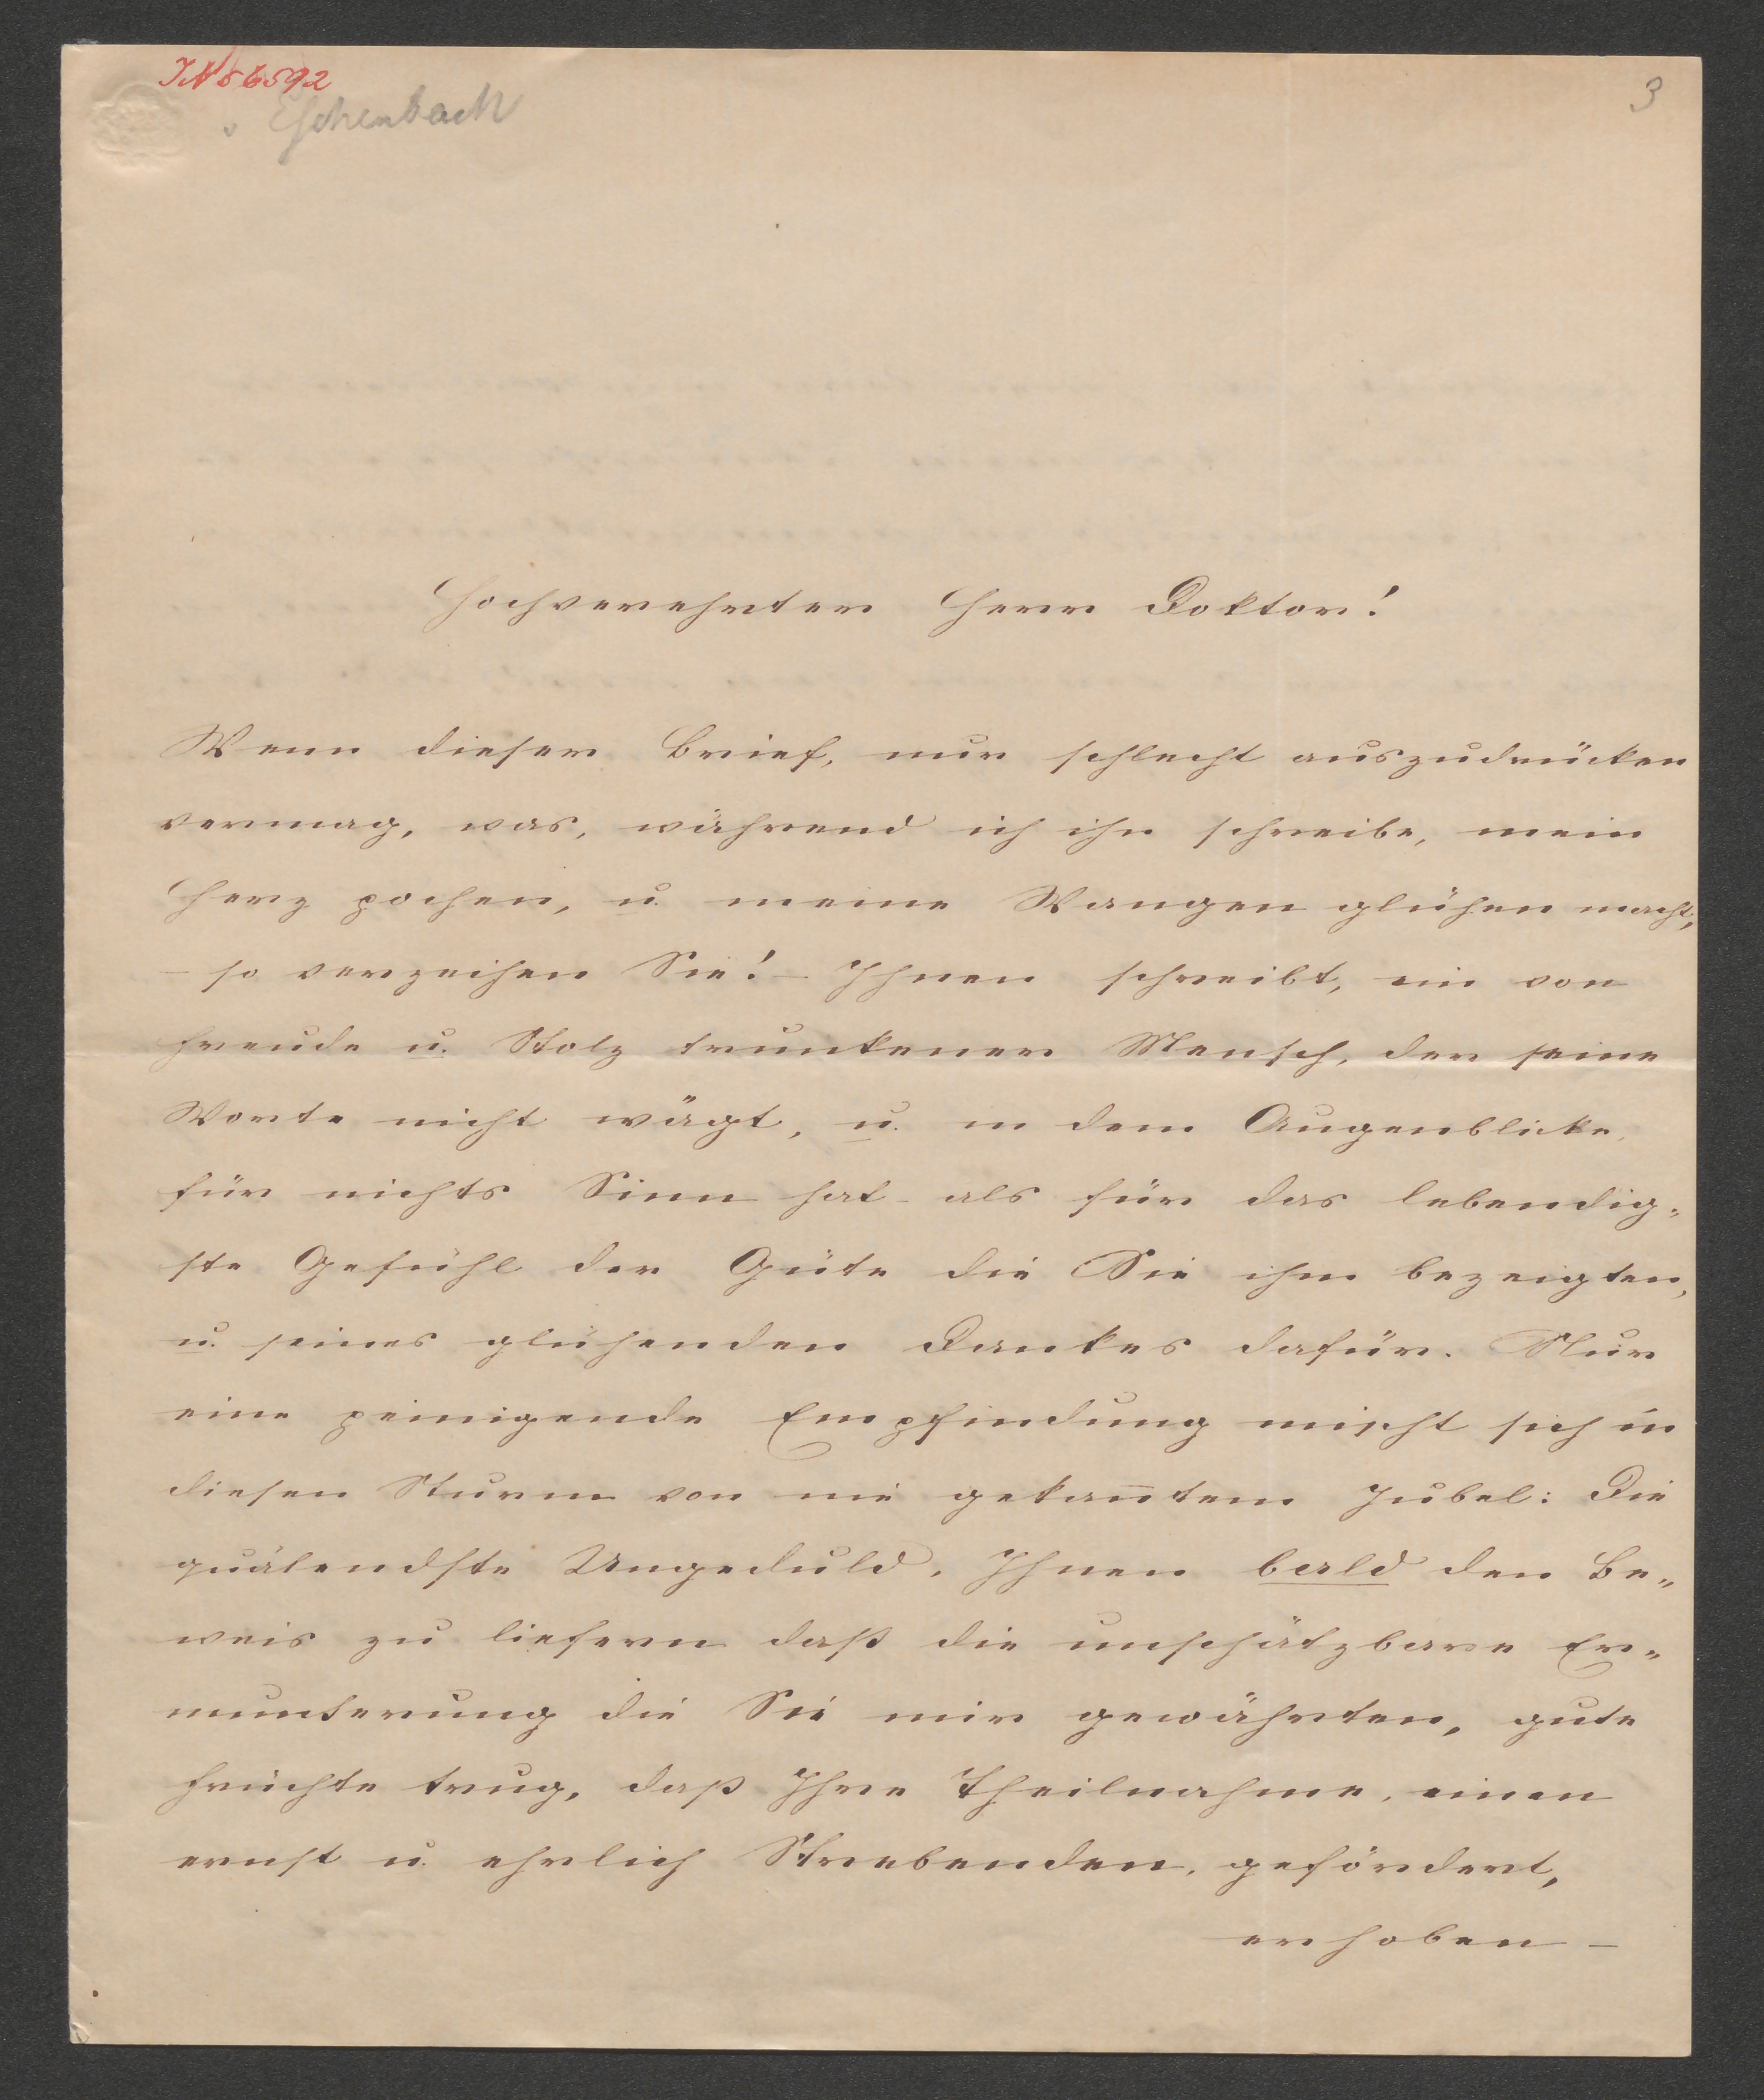 IN 56592
v Eschenbach
3
Hochverehrter Herr Doktor!
Wenn dieser Brief, nur schlecht auszudrücken
vermag, was, während ich ihn schreibe, mein
Herz pochen, u. meine Wangen glühen macht,
– so verzeihen Sie! – Ihnen schreibt, ein von
Freude u. Stolz trunkener Mensch, der seine
Worte nicht wägt, u. in dem Augenblicke,
für nichts Sinn hat als für das lebendig„
ste Gefühl der Güte die Sie ihm bezeigten,
u. seines glühenden Dankes dafür. Nur
eine peinigende Empfindung mischt sich in
diesen Sturm von nie gekan̅tem Jubel: Die
quälendste Ungeduld, Ihnen bald den Be„
weis zu liefern daß die unschätzbare Er„
munterung die Sie mir gewährten, gute
Früchte trug, daß Ihre Theilnahme, einen
ernst u. ehrlich Strebenden, gefördert,
erhoben –